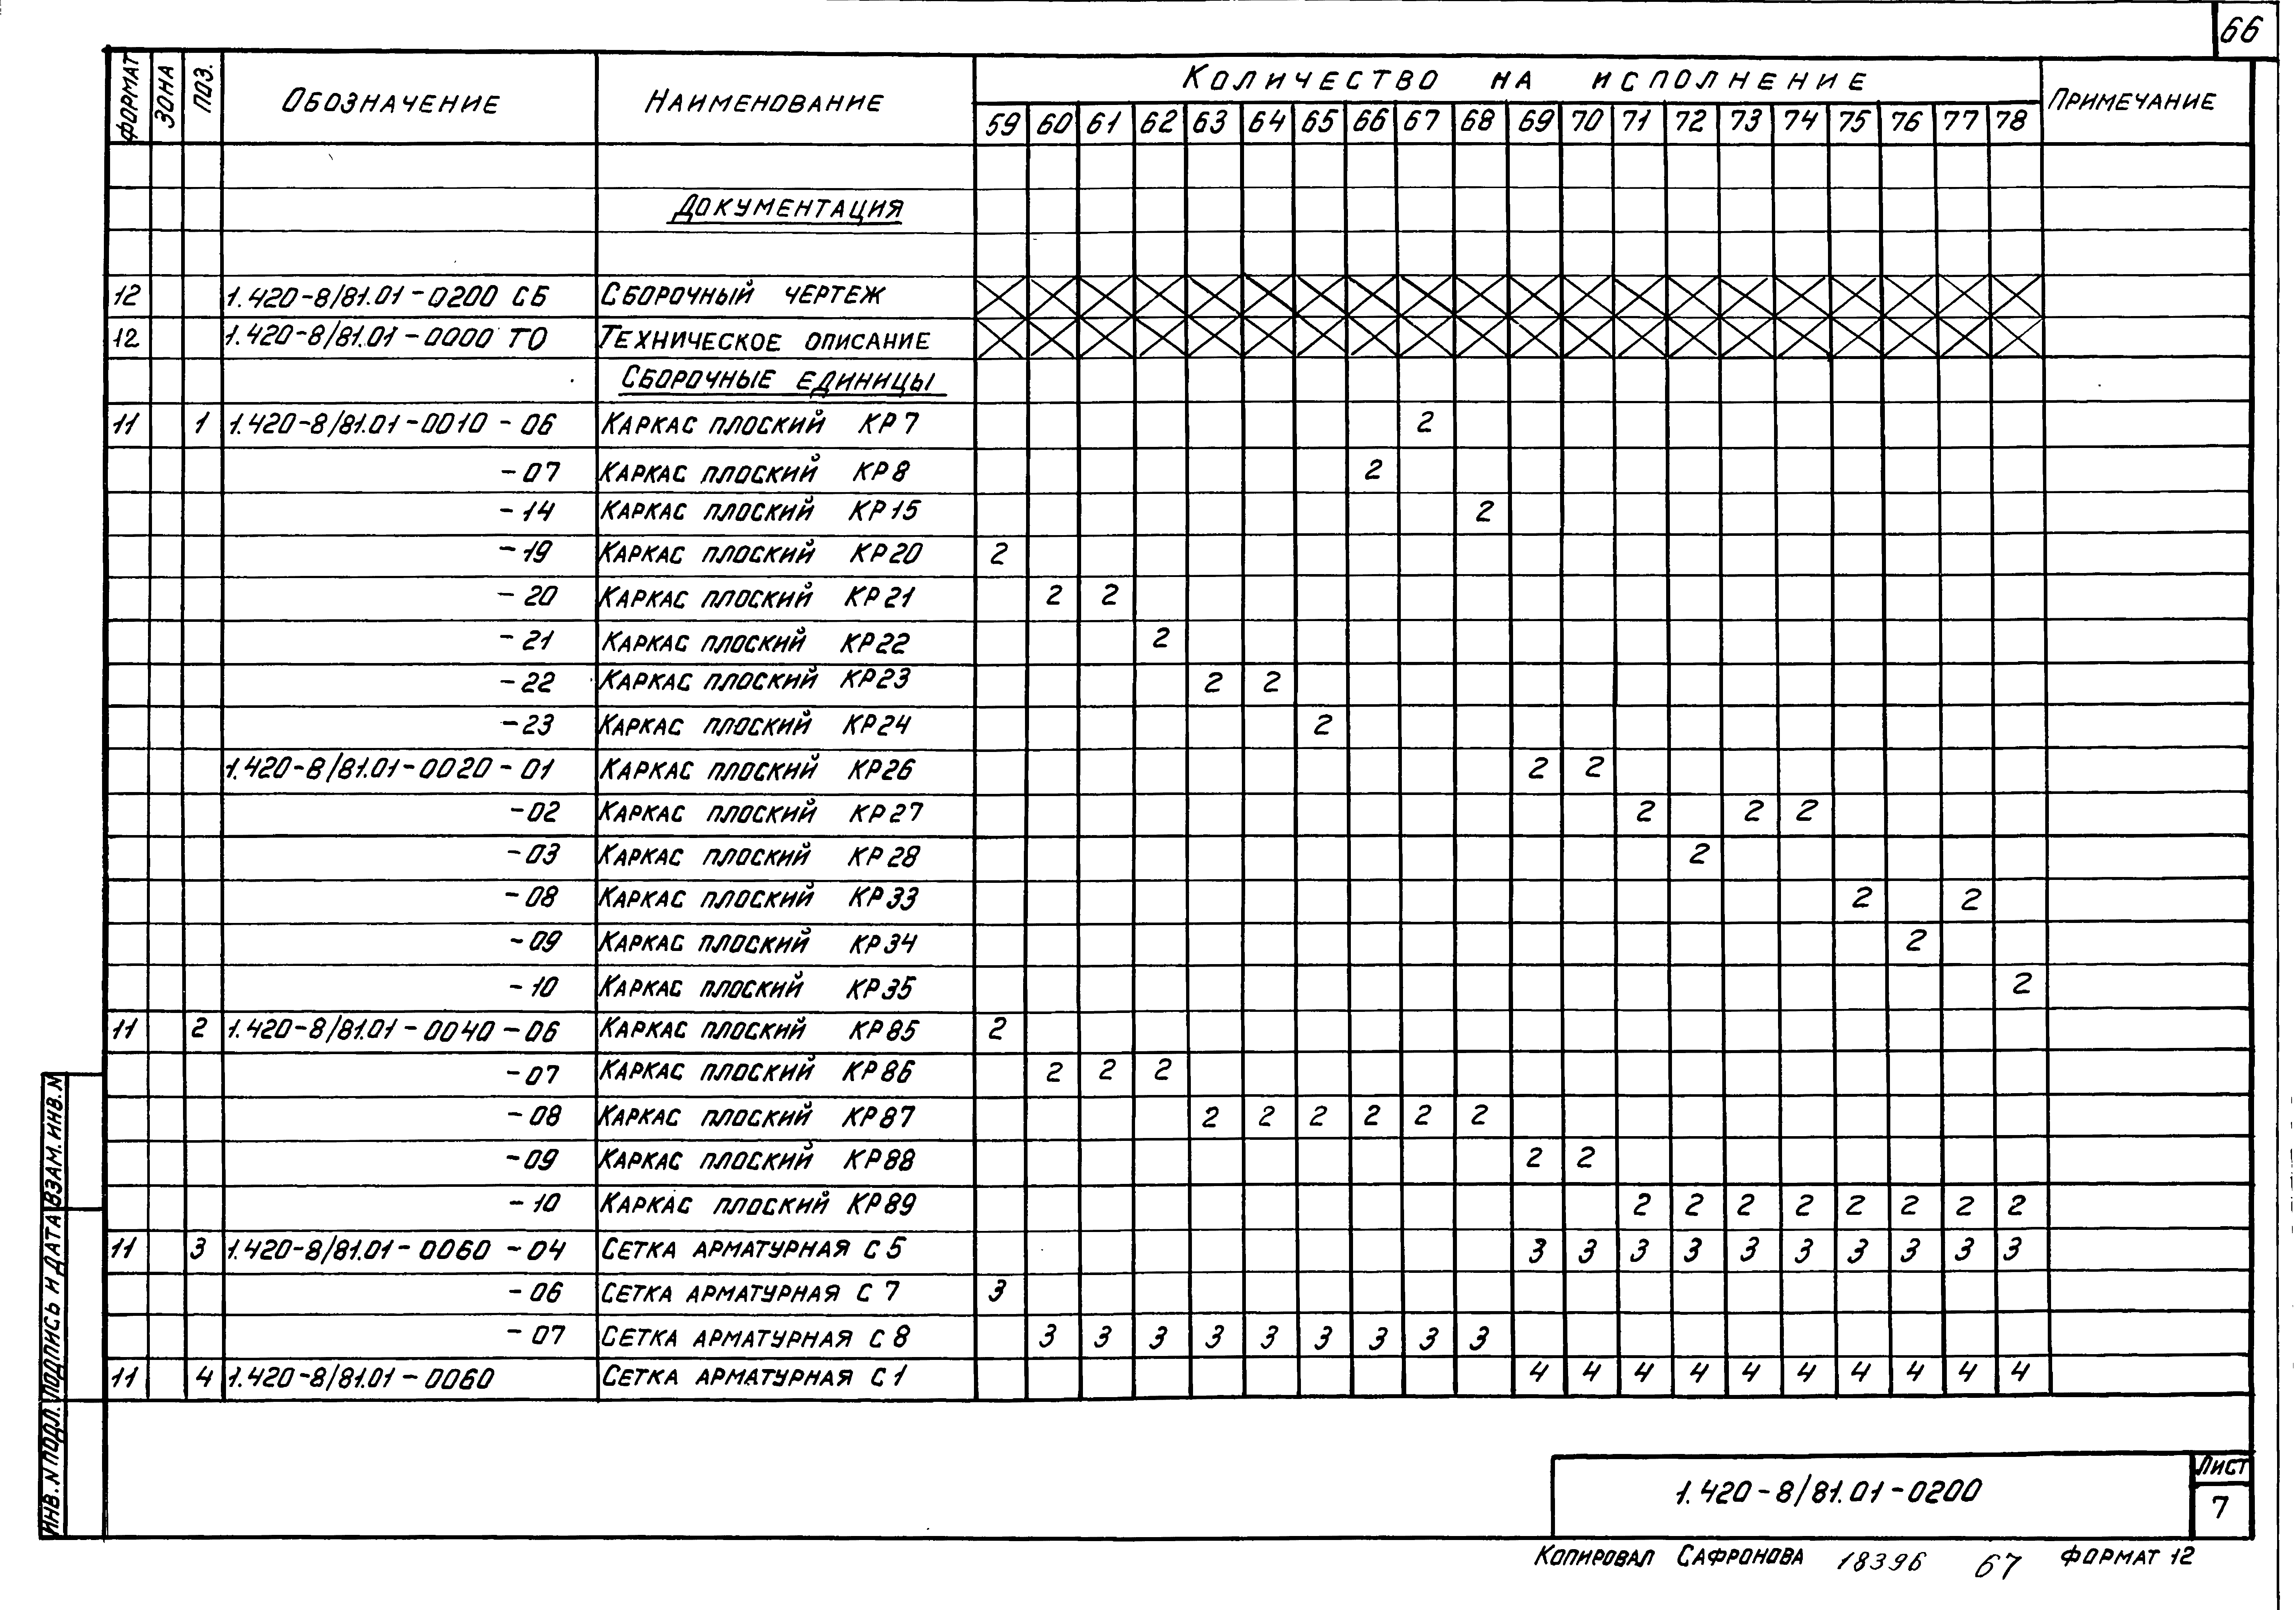 66
ФОРМАТ ЗОНА ПОЗ. ОБОЗНАЧЕНИЕ НАИМЕНОВАНИЕ КОЛИЧЕСТВО НА ИСПОЛНЕНИЕ ПРИМЕЧАНИЕ
59 60 61 62 63 64 65 66 67 68 69 70 71 72 73 74 75 76 77 78
ДОКУМЕНТАЦИЯ
12 1.420-8/81.01-0200 СБ СБОРОЧНЫЙ ЧЕРТЕЖ
12 1.420-8/81.01-0000 ТО ТЕХНИЧЕСКОЕ ОПИСАНИЕ
СБОРОЧНЫЕ ЕДИНИЦЫ
11 1 1.420-8/81.01-0010-06 КАРКАС ПЛОСКИЙ КР7 2
-07 КАРКАС ПЛОСКИЙ КР8 2
-14 КАРКАС ПЛОСКИЙ КР15 2
-19 КАРКАС ПЛОСКИЙ КР20 2
-20 КАРКАС ПЛОСКИЙ КР21 2 2
-21 КАРКАС ПЛОСКИЙ КР22 2
-22 КАРКАС ПЛОСКИЙ КР23 2 2
-23 КАРКАС ПЛОСКИЙ КР24 2
1.420-8/81.01-0020-01 КАРКАС ПЛОСКИЙ КР26 2 2
-02 КАРКАС ПЛОСКИЙ КР27 2 2 2
-03 КАРКАС ПЛОСКИЙ КР28 2
-08 КАРКАС ПЛОСКИЙ КР33 2 2
-09 КАРКАС ПЛОСКИЙ КР34 2
-10 КАРКАС ПЛОСКИЙ КР35 2
11 2 1.420-8/81.01-0040-06 КАРКАС ПЛОСКИЙ КР85 2
-07 КАРКАС ПЛОСКИЙ КР86 2 2 2
-08 КАРКАС ПЛОСКИЙ КР87 2 2 2 2 2 2
-09 КАРКАС ПЛОСКИЙ КР88 2 2
-10 КАРКАС ПЛОСКИЙ КР89 2 2 2 2 2 2 2 2
11 3 1.420-8/81.01-0060-04 СЕТКА АРМАТУРНАЯ С5 3 3 3 3 3 3 3 3 3 3
-06 СЕТКА АРМАТУРНАЯ С7 3
-07 СЕТКА АРМАТУРНАЯ С8 3 3 3 3 3 3 3 3 3
11 4 1.420-8/81.01-0060 СЕТКА АРМАТУРНАЯ С1 4 4 4 4 4 4 4 4 4 4
ИНВ.N ПОДЛ. ПОДПИСЬ И ДАТА ВЗАМ.ИНВ.N
1.420-8/81.01-0200
ЛИСТ
7
КОПИРОВАЛ САФРОНОВА 18396 67 ФОРМАТ 12